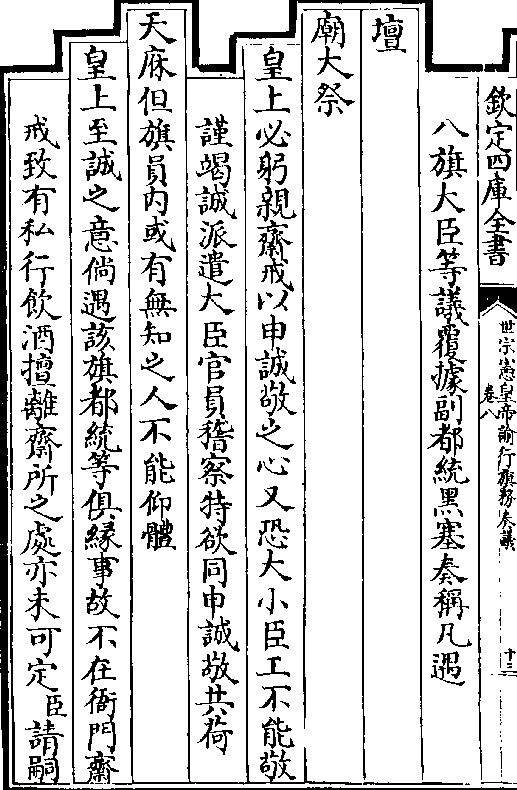 欽定四庫全書
世宗憲皇帝諭行旗務奏議
卷八
十三
八旗大臣等議覆據副都統黑塞奏稱凡遇
壇
廟大祭
皇上必躬親齋戒以申誠敬之心又恐大小臣工不能敬
謹竭誠派遣大臣官員稽察特欲同申誠敬共荷
天庥但旗員内或有無知之人不能仰體
皇上至誠之意倘遇該旗都統等俱縁事故不在衙門齋
戒致有私行飲酒擅離齋所之處亦未可定臣請嗣